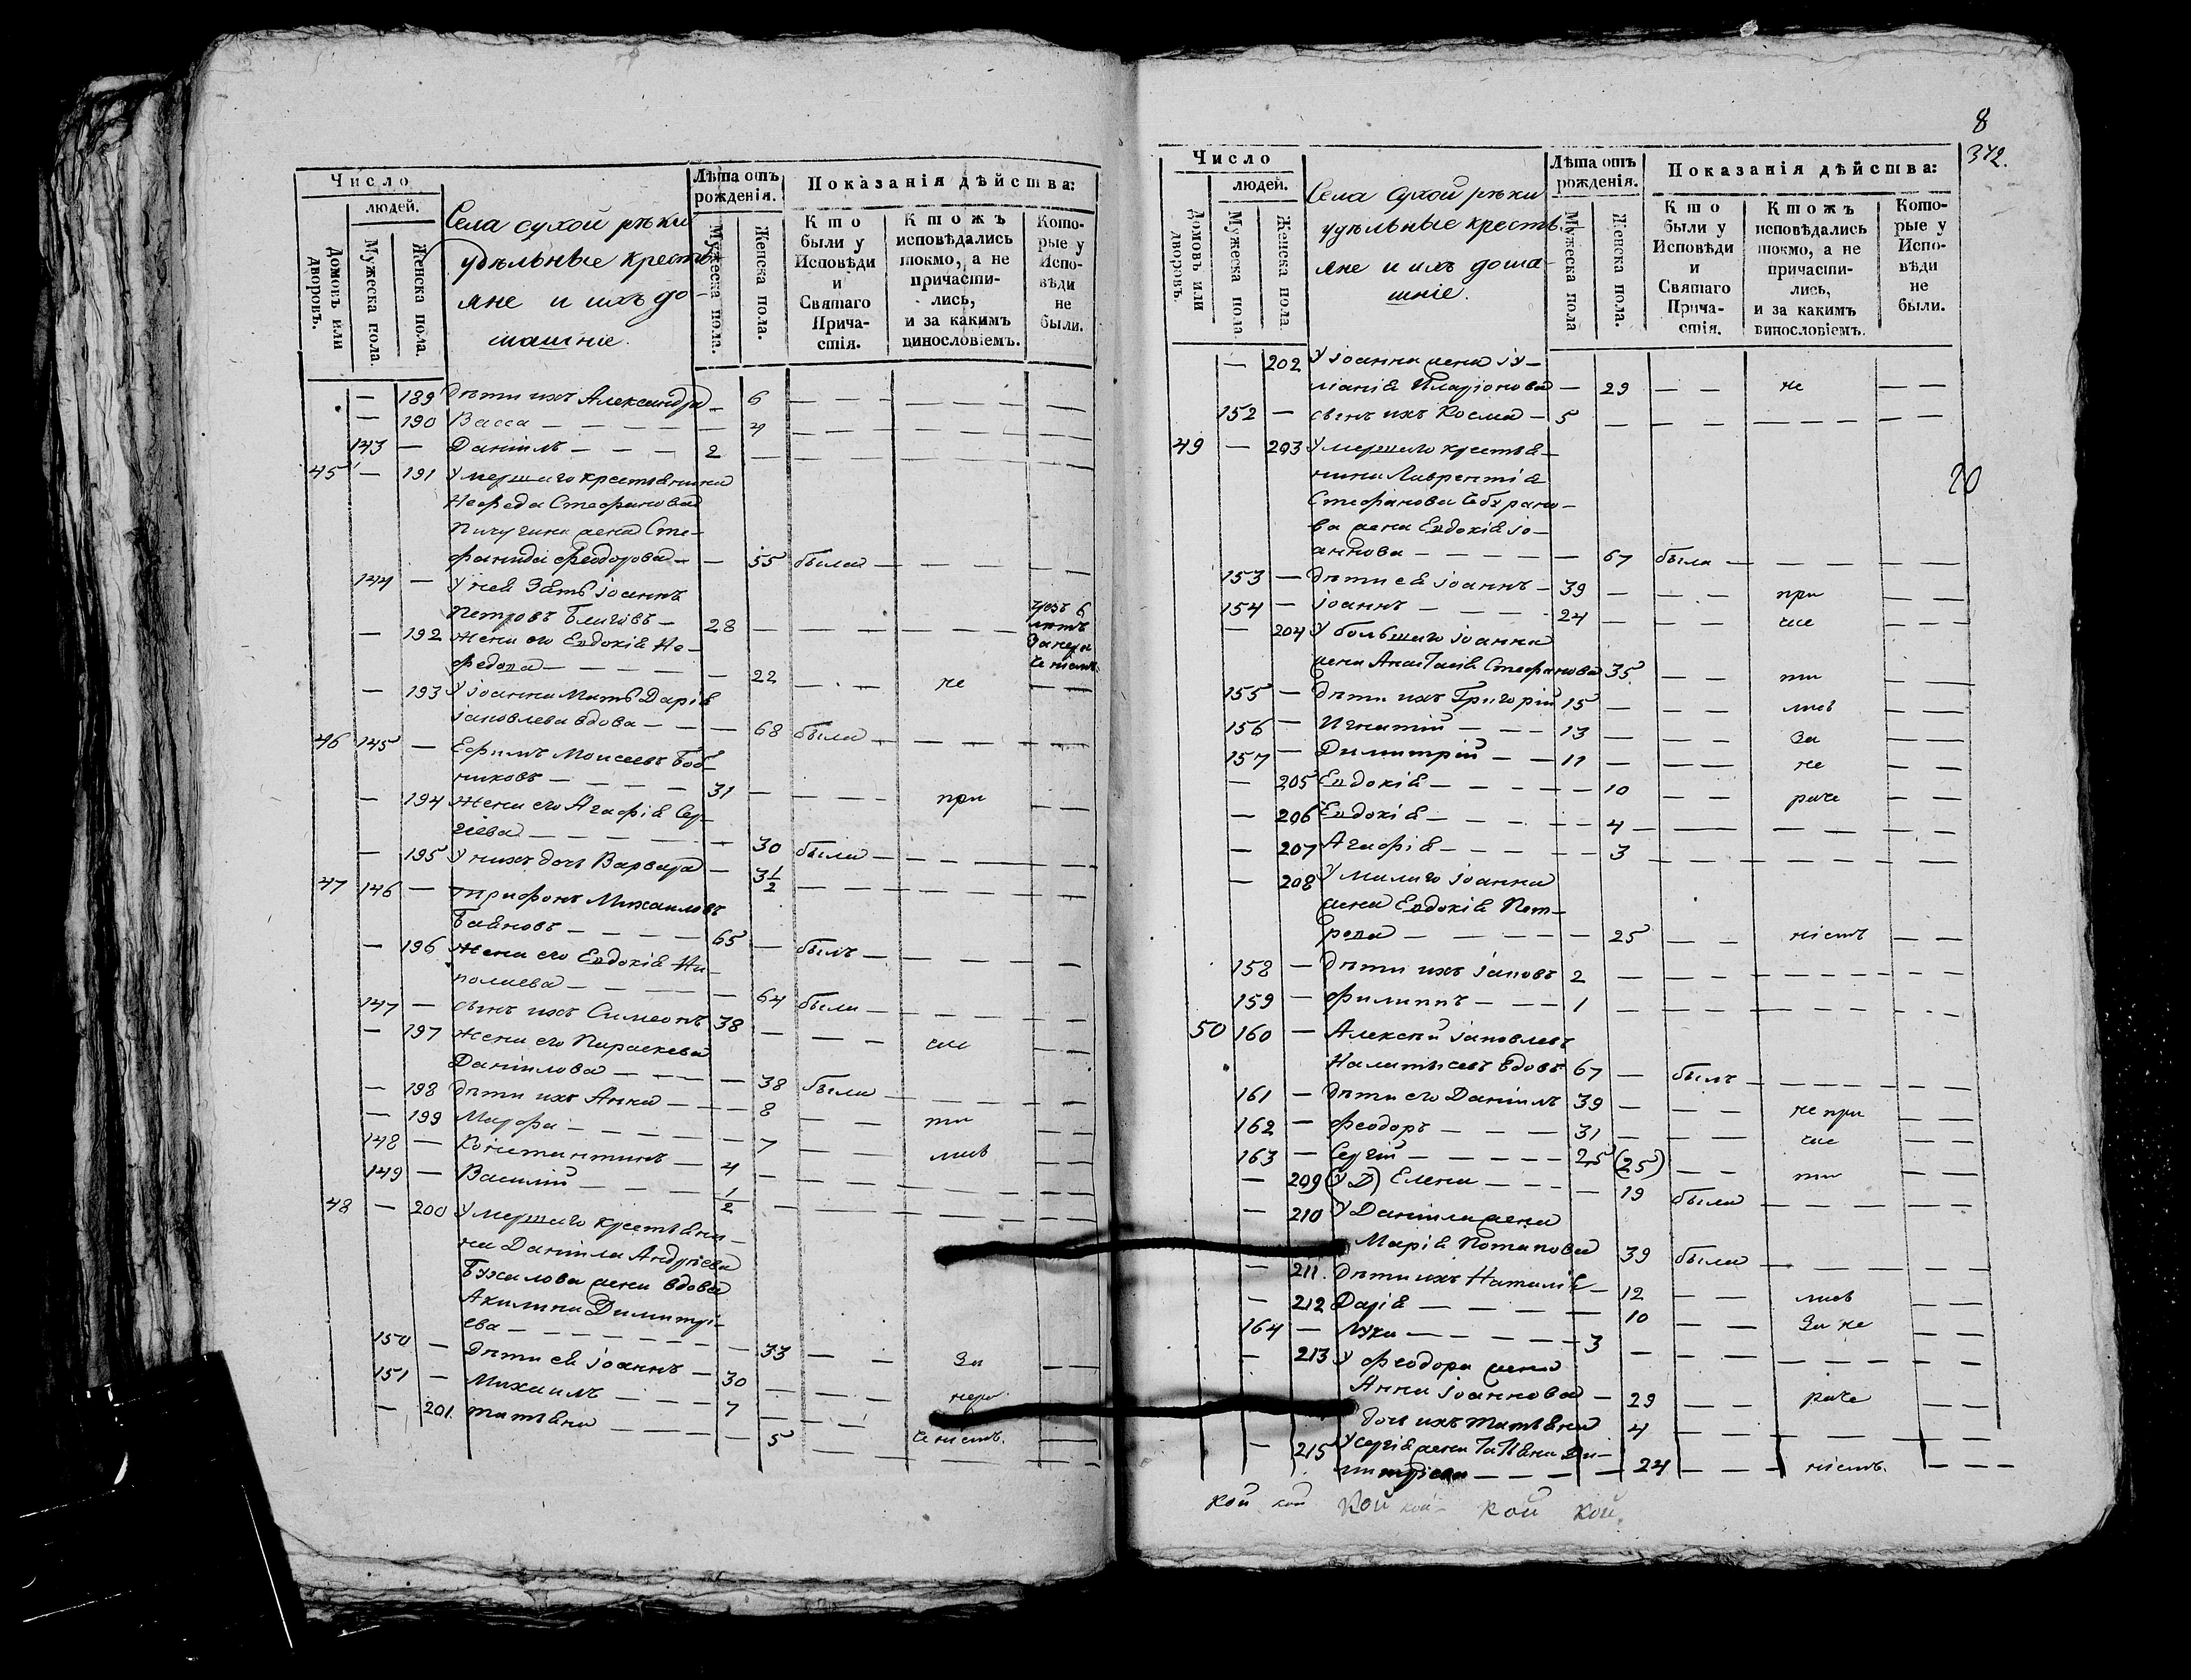 Число
людей.
Домовъ или дворовъ.
Мужеска пола.
Женска пола.
Села сухой рѣки
удѣльные кресть-
яне и ихъ до-
машніе.
Лѣта отъ рожденія.
Мужеска пола.
Женска пола.
Показанія дѣйства:
Кто были у Исповѣди и Святаго Прича-стія.
Ктожъ исповѣдались токмо, а не причасти-лись, и за какимъ винословіемъ.
Кото-рые у Испо-вѣди не были.
— 189 дѣти ихъ Александра — 6 — — — — — — —
— 190 Васса — — — — — 4 — — — — — — —
143 — Даніилъ — — — 2 — — — — — — —
45 — 191 Умершаго крестьянина
Нефеда Стефанова
Пичугина жена Сте-
фанида Феодорова — — 55 была — — — — —
144 — У нея Зять Іоаннъ
Петровъ — 28 — — — — — — чрезъ 6 лѣтъ
— 192 Жена его Евдокія Не-
федова — — — — — 22 — — — не — —
— 193 У Іоанна Мать Дарія
Іаковлева вдова — — — 68 была — — — — —
46 145 — Ефимъ Моисеевъ Боб-
никовъ — — — — 31 — — — — при — —
— 194 Жена его Агафія Сер-
гіева — — — — — 30 была — — — — —
— 195 У нихъ дочь Варвара — 3 1/2 — — — — — — —
47 146 — Трифонъ Михаиловъ
Баяновъ — — — — 65 — былъ — — — — —
— 196 Жена его Евдокія Ни-
колаева — — — — — 64 была — — — — —
147 — сынъ ихъ Симеонъ 38 — — — — ча — —
— 197 Жена его Параскева
Даніилова — — — — 38 была — — — — —
— 198 дѣти ихъ Анна — — — 8 — — сти — —
— 199 Марфа — — — — — 7 — — лись — —
148 — Константинъ — 4 — — — — — — —
149 — Василій — — — 1/2 — — — — — — —
48 — 200 Умершаго крестьяни-
на Даніила Андреева
Бужалова жена вдова
Акилина Димитрі-
ева — — — — — — 33 — — За — —
150 — Дѣти ея Іоаннъ — 30 — — — нера — —
151 — Михаилъ — — — 7 — — — —
— 201. Татьяна — — — — 5 — — ченіемъ. — —
8
372.
Число
людей.
Домовъ или дворовъ.
Мужеска пола
Женска пола.
Села сухой рѣки
удѣльные кресть-
яне и ихъ дома-
шніе.
Лѣта отъ рожденія.
Мужеска пола
Женска пола.
Показанія дѣйства:
Кто были у Исповѣди и Святаго Прича-стія.
Ктожъ исповѣдались токмо, а не причасти-лись, и за какимъ винословіемъ.
Кото-рые у Испо-вѣди не были.
— 202 У Іоанна жена Іу-
ліанія Иларіонова — 29 — — не — —
152 — сынъ ихъ Косма — 5 — — — — — — —
49 — 203 Умершаго крестья-
нина Лаврентія
Стефанова
жена Евдокія Іо-
аннова — — — — — 67 была — — — — —
20
153 — Дѣти ея Іоаннъ — 39 — — — при — —
154 — Іоаннъ — — — — 24 — — — ча — —
— 204 У большаго Іоанна
жена Анастасія Стефанова 35 — — сти — —
155 — дѣти ихъ Григорій 15 — — — лись — —
156 — Игнатій — — — 13 — — — За — —
157 — Димитрій — — 11 — — — не — —
— 205 Евдокія — — — — — 10 — — раче — —
— 206 Евдокія — — — — — 4 — — — — — — —
— 207 Агафія — — — — — 3 — — — — — — —
— 208 У малаго Іоанна
жена Евдокія Пет-
рова — — — — — 25 — — ніемъ — —
158 — Дѣти ихъ Іаковъ 2 — — — — — — —
159 — Филиппъ — — — 1 — — — — — — —
50 160 — Алексѣй Іаковлевъ
вдовъ 67 — былъ — — — — —
161 — Дѣти его Даніилъ 39 — — — не при — —
162 — Феодоръ — — — 31 — — — ча — —
163 — Сергій — — — — 25 (25) — — сти — —
— 209 (У Д) Елена — — — — 19 была — — — — —
— 210 У Даніила жена
Марія Потапова 39 была — — — — —
— 211. дѣти ихъ Наталія — 12 — — лись — —
— 212 Дарія — — — — — 10 — — За не — —
164 — Лука — — — — — 3 — — — — — — —
— 213 У Феодора жена
Анна Іоаннова — 29 — — раче — —
дочь ихъ Татьяна 4 — — — — — — —
— 215 У Сергія жена Татіана Ди-
митріева — — — — 24 — — — ніемъ. — — —
кой кой Кой кой кой кой.